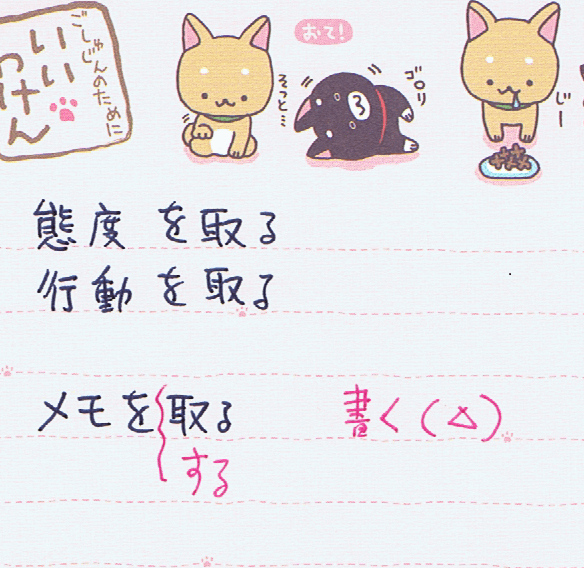 ごしゅじんのために
いい
わけん
おて!
そっと…
ゴロリ
じー
態度を取る
行動を取る
メモを取る 書く(△)
する